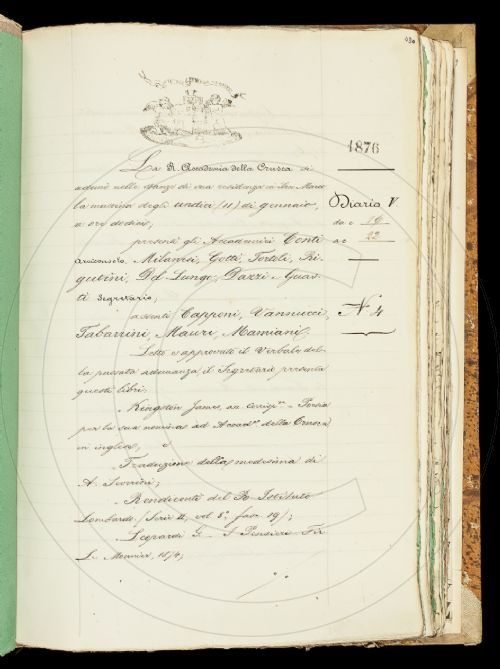 430
1876
La R. Accademia della Crusca si
adunò nelle stanze di sua residenza in San Marco
la mattina degli undici (11) di gennaio,
a ore dodici,
Diario V
da c 19
a c 22
presenti gli Accademici Conti
arciconsolo, Milanesi, Gotti, Tortoli, Ri-
gutini, Del Lungo, Dazzi e Guas-
ti segretario;
assenti Capponi, Vannucci,
Tabarrini, Mauri, Mamiani.
N. 4
Letto e approvato il Verbale del-
la passata adunanza, il Segretario presenta
questi libri:
Kingston James,
Poesia
per la sua nomina ad Accad.co della Crusca
in inglese, e
Traduzione della medesima di
A.
Rendiconti del R. Istituto
Lombardo (Serie II, vol 8°, fasc. 19);
Leopardi G. - I Pensieri. Fir.
Le Monnier, 1874;